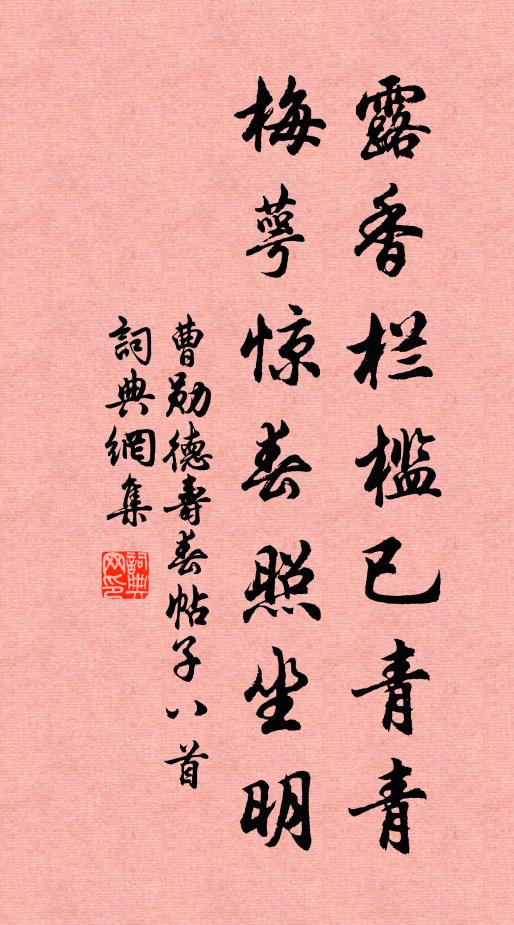 露香栏槛已青青
梅萼惊春照坐明
曹勋德壽春帖子八首
詞典網集
詞典网印